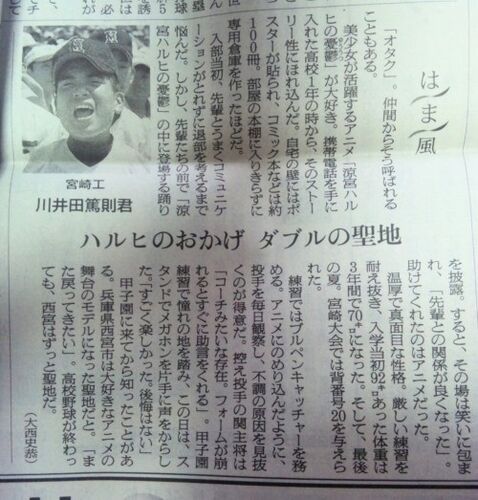 はま風
「オタク」。仲間からそう呼ばれる
こともある。
美少女が活躍するアニメ「涼宮ハル
ヒの憂鬱」が大好き。携帯電話を手に
入れた高校1年の時から、そのストー
リー性にほれ込んだ。自宅の壁にはポ
スターが貼られ、コミック本などは約
100冊。部屋の本棚に入りきらずに
専用倉庫を作ったほどだ。
入部当初、先輩とうまくコミュニケ
ーションがとれずに退部を考えるまで
悩んだ。しかし、先輩たちの前で「涼
宮ハルヒの憂鬱」の中に登場する踊り
宮崎工
川井田篤則君
ハルヒのおかげ ダブルの聖地
を披露。すると、その場は笑いに包ま
れ、「先輩との関係が良くなった」。
助けてくれたのはアニメだった。
温厚で真面目な性格。厳しい練習を
耐え抜き、入学当初92㌔あった体重は
3年間で70㌔になった。そして、最後
の夏。宮崎大会では背番号20を与えら
れた。
練習ではブルペンキャッチャーを務
める。アニメにのめり込んだように、
投手を毎日観察し、不調の原因を見抜
くのが得意だ。控え投手の関主将は
「コーチみたいな存在。フォームが崩
れるとすぐに助言をくれる」。甲子園
練習で憧れの地を踏み、この日は、ス
タンドでメガホンを片手に声をからし
た。「すごく楽しかった。後悔はない」
甲子園に来てから知ったことがあ
る。兵庫県西宮市は大好きなアニメの
舞台のモデルになった聖地だと。「ま
た戻ってきたい」。高校野球が終わっ
ても、西宮はずっと聖地だ。
(大西史恭)